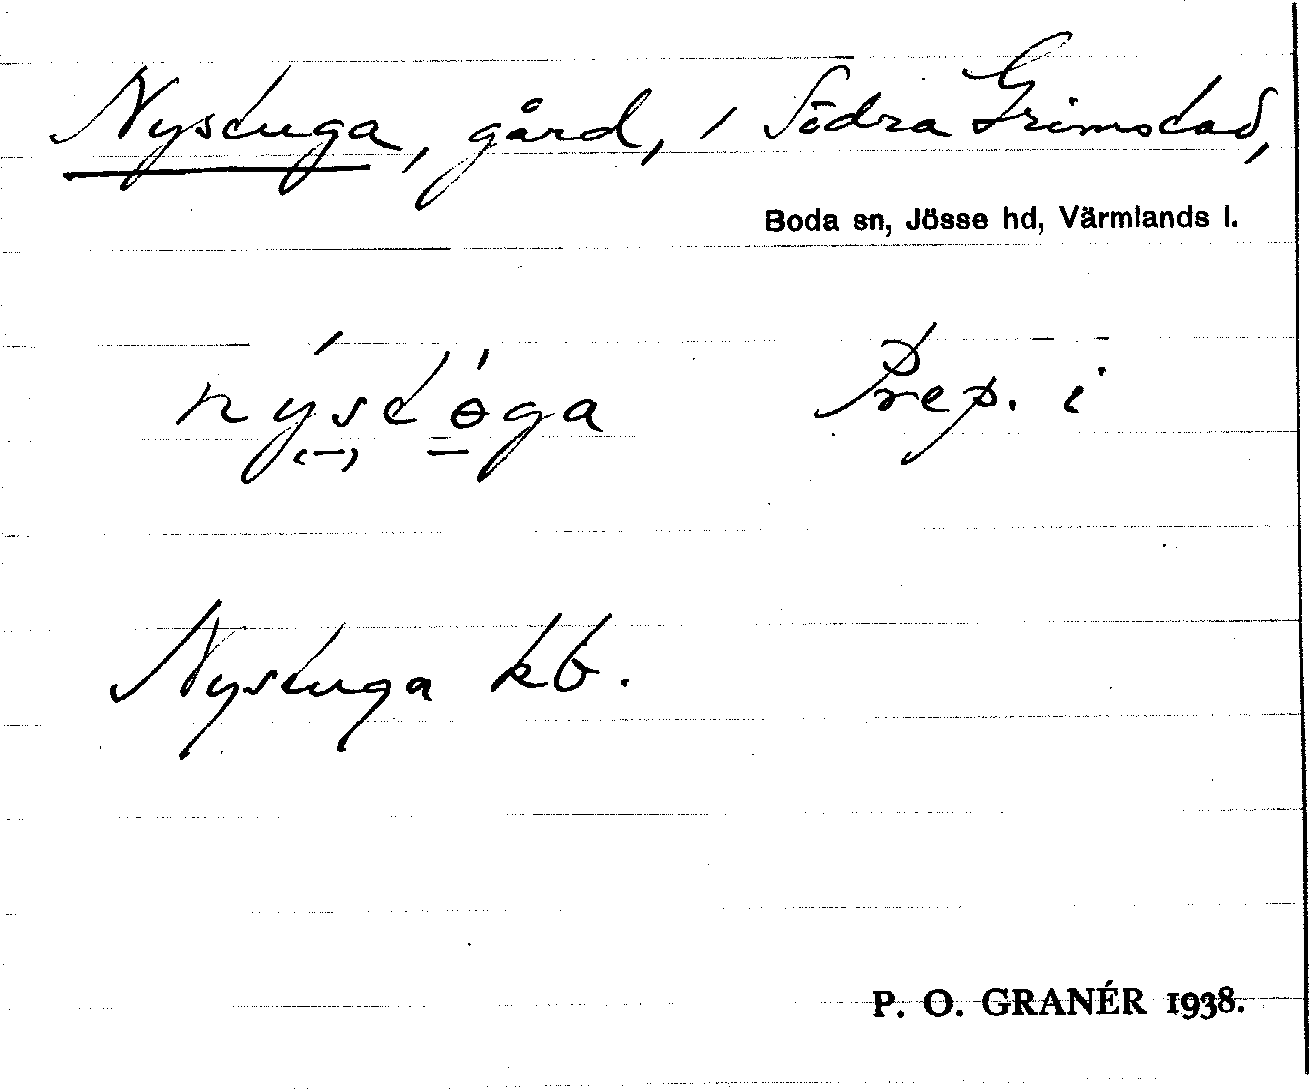 Nystuga, gård, i Södra Grimstad,
Boda sn, Jösse hd, Värmlands l.
nýstө́ga Prep. i
Nystuga kb.
P. O. GRANÉR 1938.